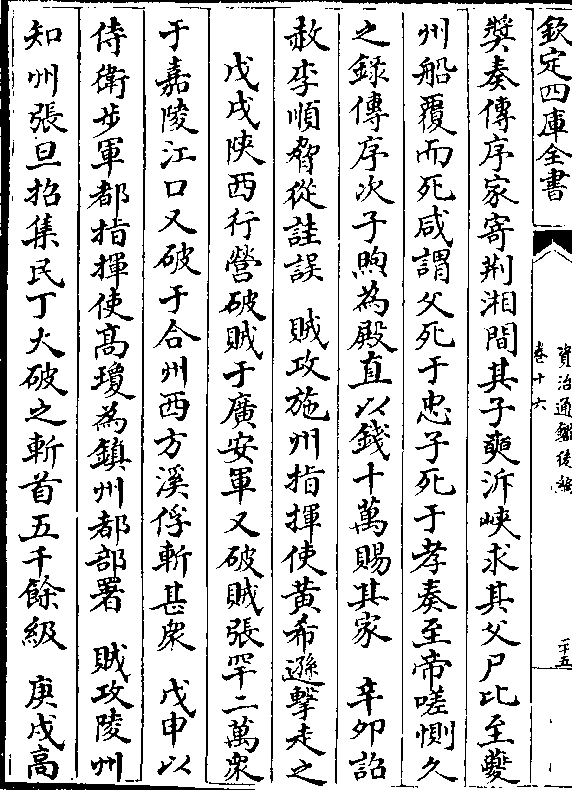 欽定四庫全書
資治通鑑後編
卷十六
二十五
奬奏傳序家寄荆湘間其子奭泝峽求其父尸比至夔
州船覆而死咸謂父死于忠子死于孝奏至帝嗟惻久
之録傳序次子煦為殿直以錢十萬賜其家　辛卯詔
赦李順脅從詿誤　賊攻施州指揮使黄希遜擊走之
戊戌陜西行營破賊于廣安軍又破賊張罕二萬衆
于嘉陵江口又破于合州西方溪俘斬甚衆　戊申以
侍衛步軍都指揮使髙瓊為鎮州都部署　賊攻陵州
知州張旦招集民丁大破之斬首五千餘級　庚戌高